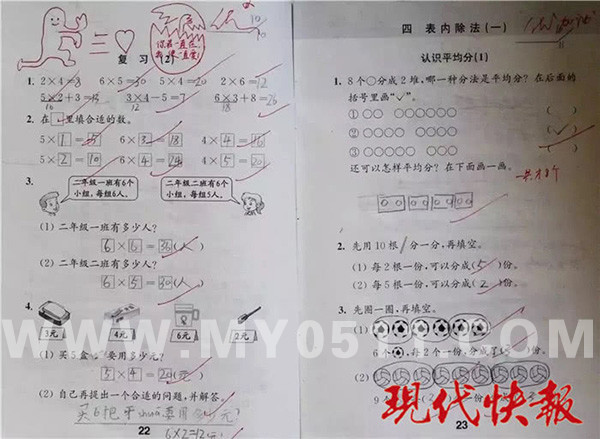 三
复 习 (2)
1. 2×4=8 6×5=30 5×4=20 2×6=12
5×2+3=13 3×4-5=7 6×3+8=26
2. 在□里填合适的数。
5×1=5 6×3=18 4×4=16
5×2=10 6×4=24 4×5=20
3.
二年级一班有6个小组，每组6人。
二年级二班有6个小组，每组5人。
(1) 二年级一班有多少人？
6×6=36(人)
(2) 二年级二班有多少人？
6×5=30(人)
4.
3元 4元 6元 2元
(1) 买5盒 要用多少元？
5×4=20(元)
(2) 自己再提出一个合适的问题，并解答。
买6把 要用 元？
6×2=12
22
四 表内除法(一)
认识平均分(1)
1. 8个○分成2堆，哪一种分法是平均分？在后面的
括号里画“✓”。
① ○○ ○○○○○○ ( )
② ○○○○ ○○○○ (✓)
③ ○○○ ○○○○○ ( )
还可以怎样平均分？在下面画一画。
2. 先用10根 分一分，再填空。
(1) 每2根一份，可以分成(5)份。
(2) 每5根一份，可以分成(2)份。
3. 先圈一圈，再填空。
(1)
6个 ，每2个一份，分成了(3)份。
(2)
9个
23
WWW.MY0511.COM
现代快報